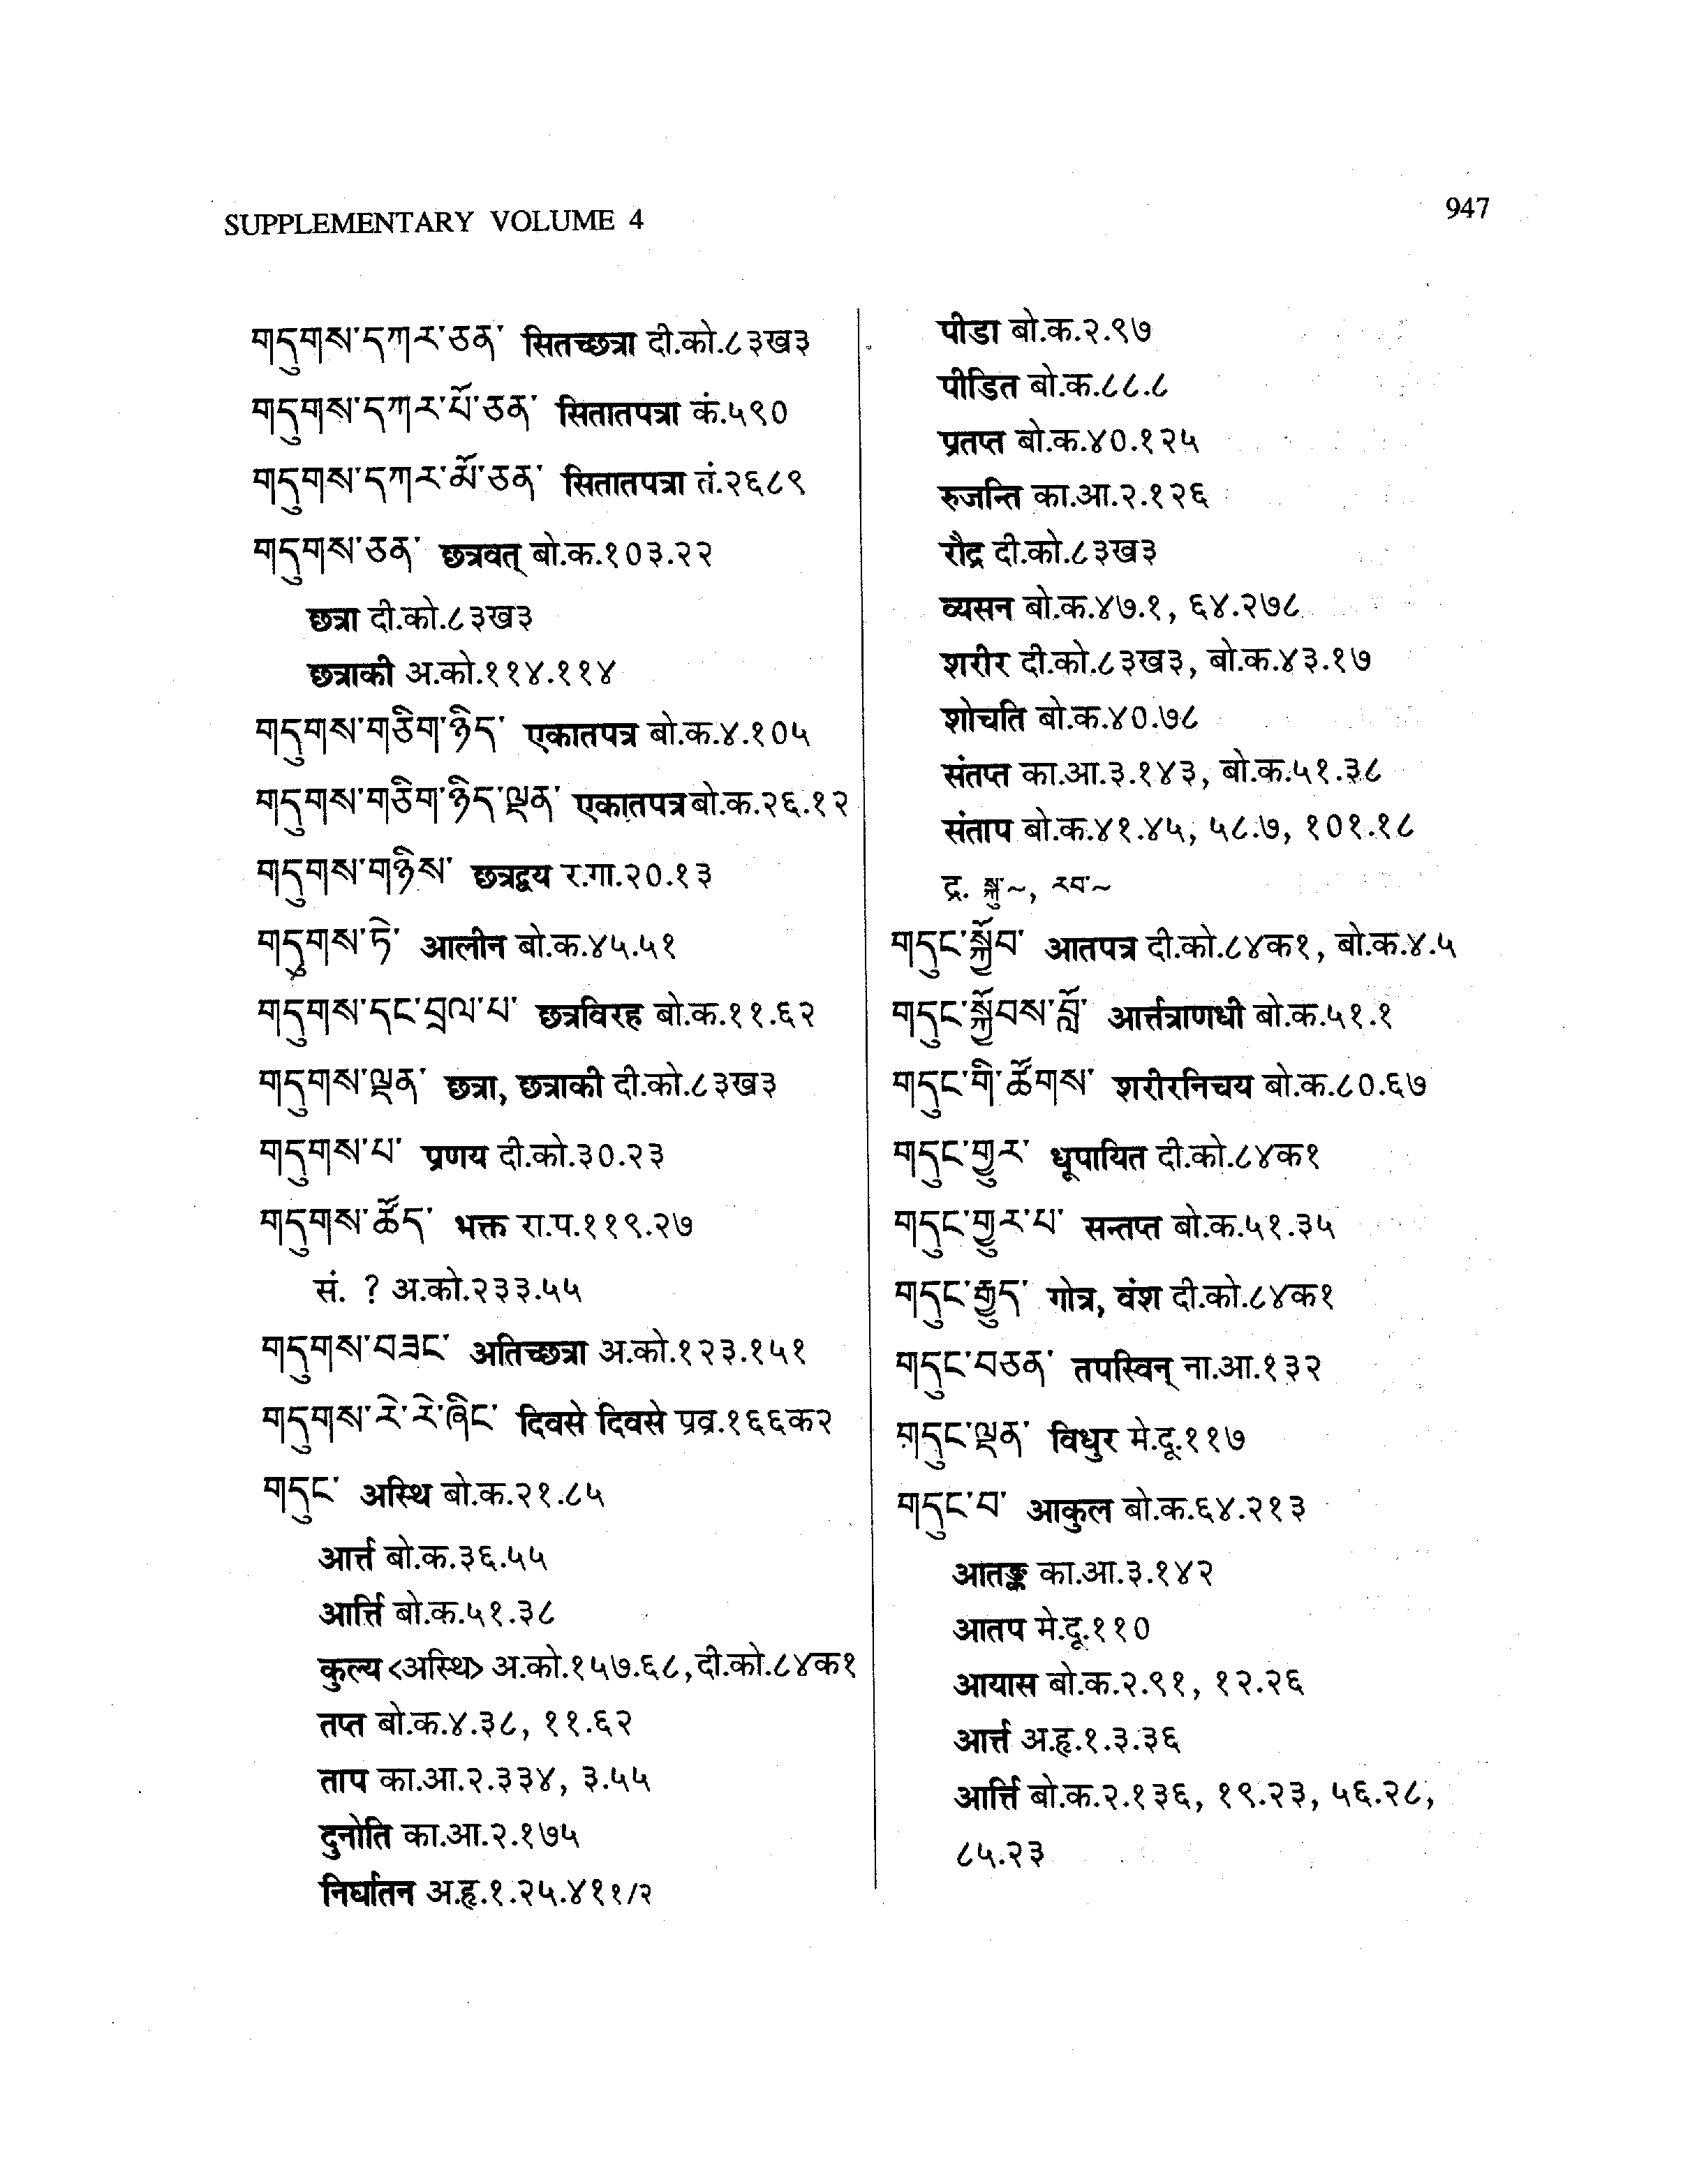 SUPPLEMENTARY VOLUME 4
947
གདུགས་དཀར་ཅན་ सितच्छत्रा दी.को.८३ख३
གདུགས་དཀར་པོ་ཅན་ सितातपत्रा कं.५९०
གདུགས་དཀར་མོ་ཅན་ सितातपत्रा तं.२६८९
གདུགས་ཅན་ छत्रवत् बो.क.१०३.२२
छत्रा दी.को.८३ख३
छत्राकी अ.को.११४.११४
གདུགས་གཅིག་ཉིད་ एकातपत्र बो.क.४.१०५
གདུགས་གཅིག་ཉིད་ལྡན་ एकातपत्र बो.क.२६.१२
གདུགས་གཉིས་ छत्रद्वय र.गा.२०.१३
གདུགས་ཏེ་ आलीन बो.क.४५.५१
གདུགས་དང་བྲལ་པ་ छत्रविरह बो.क.११.६२
གདུགས་ལྡན་ छत्रा, छत्राकी दी.को.८३ख३
གདུགས་པ་ प्रणय दी.को.३०.२३
གདུགས་ཚོད་ भक्त रा.प.११९.२७
सं. ? अ.को.२३३.५५
གདུགས་བཟང་ अतिच्छत्रा अ.को.१२३.१५१
གདུགས་རེ་རེ་ཞིང་ दिवसे दिवसे प्रव्र.१६६क२
གདུང་ अस्थि बो.क.२१.८५
आर्त्त बो.क.३६.५५
आर्त्ति बो.क.५१.३८
कुल्य <अस्थि> अ.को.१५७.६८, दी.को.८४क१
तप्त बो.क.४.३८, ११.६२
ताप का.आ.२.३३४, ३.५५
दुनोति का.आ.२.१७५
निर्घातन अ.हृ.१.२५.४११/२
पीडा बो.क.२.९७
पीडित बो.क.८८.८
प्रतप्त बो.क.४०.१२५
रुजन्ति का.आ.२.१२६
रौद्र दी.को.८३ख३
व्यसन बो.क.४७.१, ६४.२७८
शरीर दी.को.८३ख३, बो.क.४३.१७
शोचति बो.क.४०.७८
संतप्त का.आ.३.१४३, बो.क.५१.३८
संताप बो.क.४१.४५, ५८.७, १०१.१८
द्र. སྐུ་~, རབ་~
གདུང་སྐྱོབ་ आतपत्र दी.को.८४क१, बो.क.४.५
གདུང་སྐྱོབས་བློ་ आर्त्तत्राणधी बो.क.५१.१
གདུང་གི་ཚོགས་ शरीरनिचय बो.क.८०.६७
གདུང་གྱུར་ धूपायित दी.को.८४क१
གདུང་གྱུར་པ་ सन्तप्त बो.क.५१.३५
གདུང་རྒྱུད་ गोत्र, वंश दी.को.८४क१
གདུང་བཅན་ तपस्विन् ना.आ.१३२
གདུང་ལྡན་ विधुर मे.दू.११७
གདུང་བ་ आकुल बो.क.६४.२१३
आतङ्क का.आ.३.१४२
आतप मे.दू.११०
आयास बो.क.२.९१, १२.२६
आर्त्त अ.हृ.१.३.३६
आर्त्ति बो.क.२.१३६, १९.२३, ५६.२८,
८५.२३